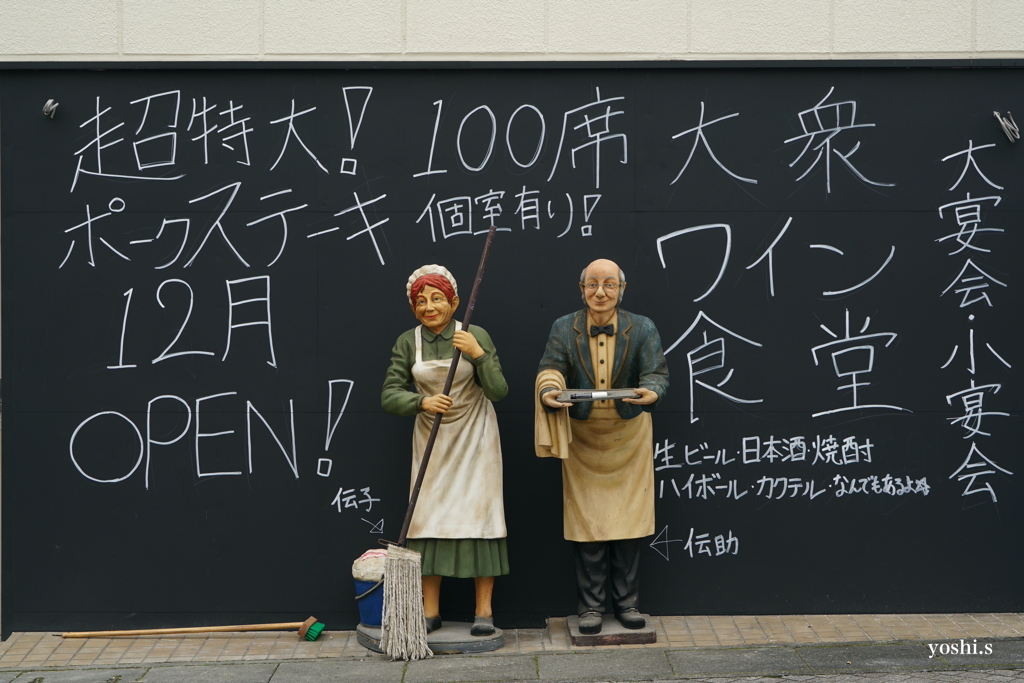 超特大!
ポークステーキ
12月
OPEN!
100席
個室有り!
大衆
ワイン
食堂
生ビール・日本酒・焼酎
ハイボール・カクテル・なんでもあるよ
大宴会・小宴会
伝子
伝助
yoshi.s